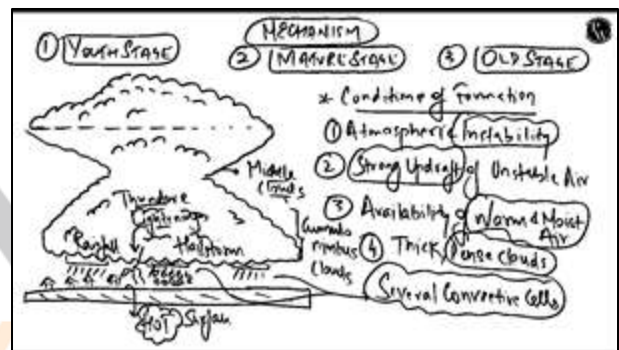 MECHANISM
① YOUTH STAGE ② MATURE STAGE ③ OLD STAGE
* Conditions of Formation
① Atmospheric Instability
② Strong Updraft of Unstable Air
③ Availability of Warm & Moist Air
④ Thick, Dense Clouds
Several Convective Cells
Middle Clouds
Thunder
Lightning
Rainfall Hailstorm
Cumulo nimbus Clouds
HOT Surface